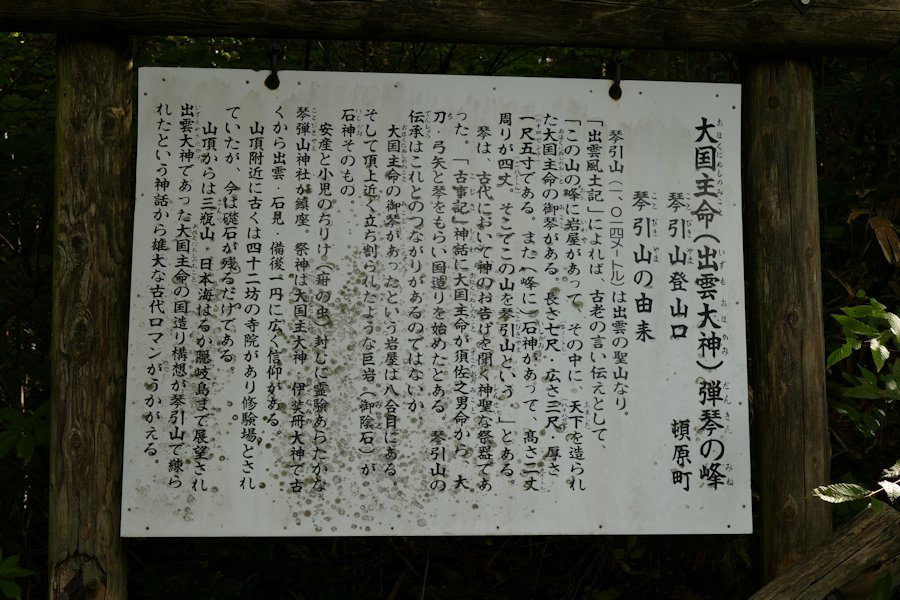 大国主命(出雲大神)弾琴の峰
琴引山登山口　頓原町
琴引山の由来
琴引山(一、〇一四メートル)は出雲の聖山なり。
「出雲風土記」によれば、古老の言い伝えとして、
「この山の峰に岩屋があって、その中に、天下を造られ
た大国主命の御琴がある。長さ七尺・広さ三尺、厚さ
一尺五寸である。また(峰に)石神があって、高さ二丈
周りが四丈、そこでこの山を琴引山という。」とある。
琴は、古代において神のお告げを聞く神聖な祭器であ
った。「古事記」神話に大国主命が須佐之男命から、大
刀・弓矢と琴をもらい国造りを始めたとある。琴引山の
伝承はこれとのつながりがあるのではないか
大国主命の御琴があったという岩屋は八合目にある。
そして頂上近く立ち割られたような巨岩(御陰石)が
石神そのもの。
安産と小児のちりけ(疳の虫)封じに霊験あらたかな
琴弾山神社が鎮座、祭神は大国主大神、伊弉冊大神で古
くから出雲・石見・備後一円に広く信仰がある。
山頂附近に古くは四十二坊の寺院があり修験場とされ
ていたが、今は礎石が残るだけである。
山頂からは三瓶山、日本海はるか隠岐島まで展望され
出雲大神であった大国主命の国造り構想が琴引山で練ら
れたという神話から雄大な古代ロマンがうかがえる。